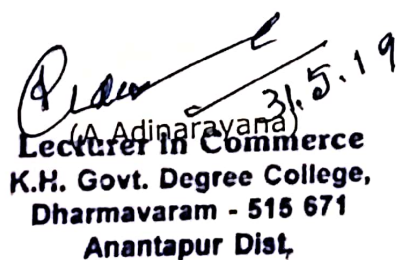 31.5.19
(A Adinarayana)
Lecturer in Commerce
K.H. Govt. Degree College,
Dharmavaram - 515 671
Anantapur Dist,